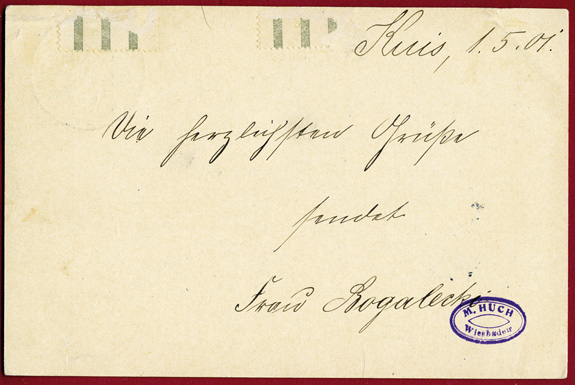 Kuis, 1.5.01.
Die herzlichsten Grüße
sendet
Frau Rogalecki
M. HUCH
Wiesbaden